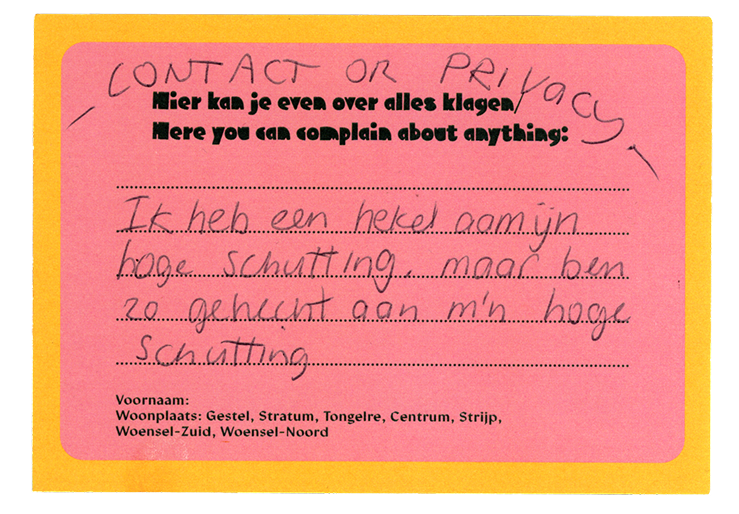 - CONTACT OR PRIVACY -
Hier kan je even over alles klagen/
Here you can complain about anything:
Ik heb een hekel aamijn
hoge schutting, maar ben
zo gehecht aan m'n hoge
schutting
Voornaam:
Woonplaats: Gestel, Stratum, Tongelre, Centrum, Strijp,
Woensel-Zuid, Woensel-Noord